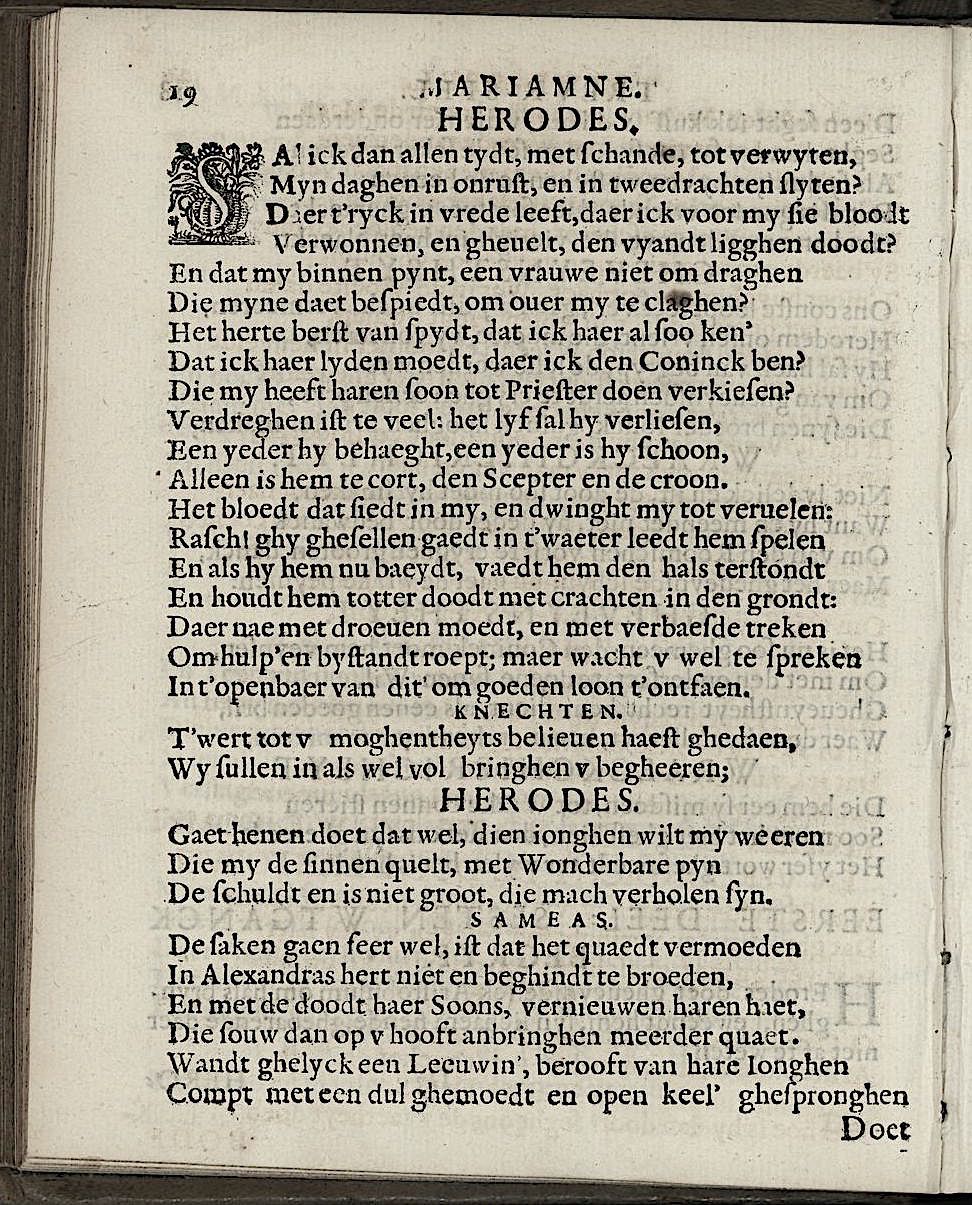 19 MARIAMNE.
HERODES.
SAl ick dan allen tydt, met ſchande, tot verwyten,
Myn daghen in onruſt, en in tweedrachten ſlyten?
Daer t'ryck in vrede leeft, daer ick voor my ſie bloodt
Verwonnen, en gheuelt, den vyandt ligghen doodt?
En dat my binnen pynt, een vrauwe niet om draghen
Die myne daet beſpiedt, om ouer my te claghen?
Het herte berſt van ſpydt, dat ick haer al ſoo ken'
Dat ick haer lyden moedt, daer ick den Coninck ben?
Die my heeft haren ſoon tot Prieſter doen verkieſen?
Verdreghen iſt te veel: het lyf ſal hy verlieſen,
Een yeder hy behaeght, een yeder is hy ſchoon,
Alleen is hem te cort, den Scepter en de croon.
Het bloedt dat ſiedt in my, en dwinght my tot veruelen:
Raſch! ghy gheſellen gaedt in t'waeter leedt hem ſpelen
En als hy hem nu baeydt, vaedt hem den hals terſtondt
En houdt hem totter doodt met crachten in den grondt:
Daer nae met droeuen moedt, en met verbaeſde treken
Om hulp' en byſtandt roept; maer wacht v wel te ſpreken
In t'openbaer van dit' om goeden loon t'ontfaen.
KNECHTEN.
T'wert tot v moghentheyts belieuen haeſt ghedaen,
Wy ſullen in als wel vol bringhen v begheeren;
HERODES.
Gaet henen doet dat wel, dien ionghen wilt my weeren
Die my de ſinnen quelt, met Wonderbare pyn
De ſchuldt en is niet groot, die mach verholen ſyn.
SAMEAS.
De ſaken gaen ſeer wel, iſt dat het quaedt vermoeden
In Alexandras hert niet en beghindt te broeden,
En met de doodt haer Soons, vernieuwen haren haet,
Die ſouw dan op v hooft anbringhen meerder quaet.
Wandt ghelyck een Leeuwin', berooft van hare Ionghen
Compt met een dul ghemoedt en open keel' gheſpronghen
Doet